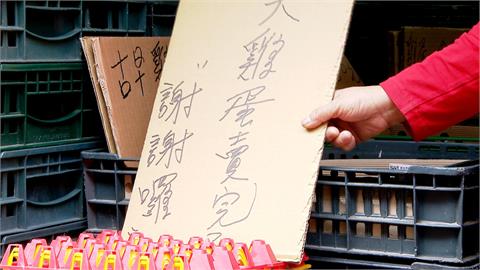 雞蛋賣完
謝謝囉
古早雞